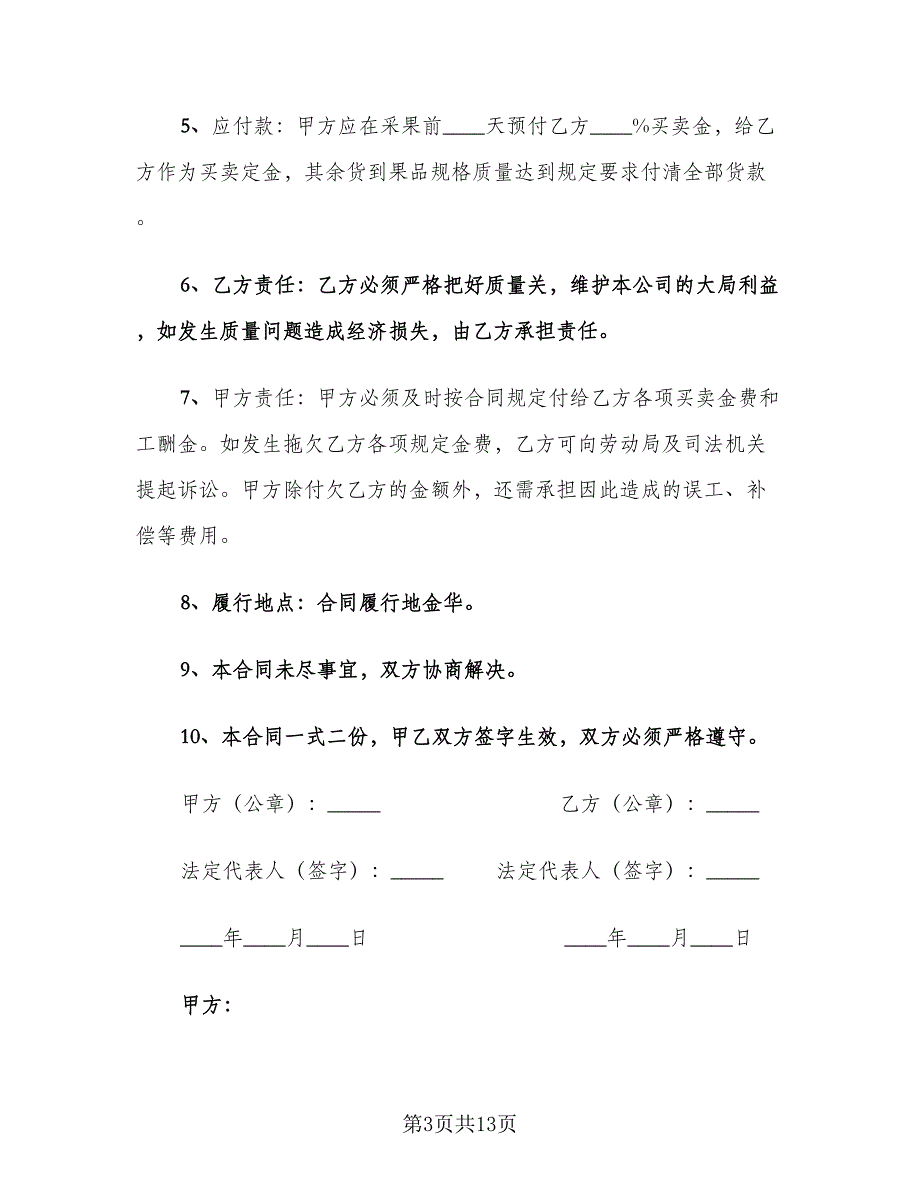 5、应付款：甲方应在采果前____天预付乙方____%买卖金，给乙
方作为买卖定金，其余货到果品规格质量达到规定要求付清全部货款
。
6、乙方责任：乙方必须严格把好质量关，维护本公司的大局利益
，如发生质量问题造成经济损失，由乙方承担责任。
7、甲方责任：甲方必须及时按合同规定付给乙方各项买卖金费和
工酬金。如发生拖欠乙方各项规定金费，乙方可向劳动局及司法机关
提起诉讼。甲方除付欠乙方的金额外，还需承担因此造成的误工、补
偿等费用。
8、履行地点：合同履行地金华。
9、本合同未尽事宜，双方协商解决。
10、本合同一式二份，甲乙双方签字生效，双方必须严格遵守。
甲方（公章）：_____ 乙方（公章）：_____
法定代表人（签字）：_____ 法定代表人（签字）：_____
____年____月____日 ____年____月____日
甲方：
第3页共13页